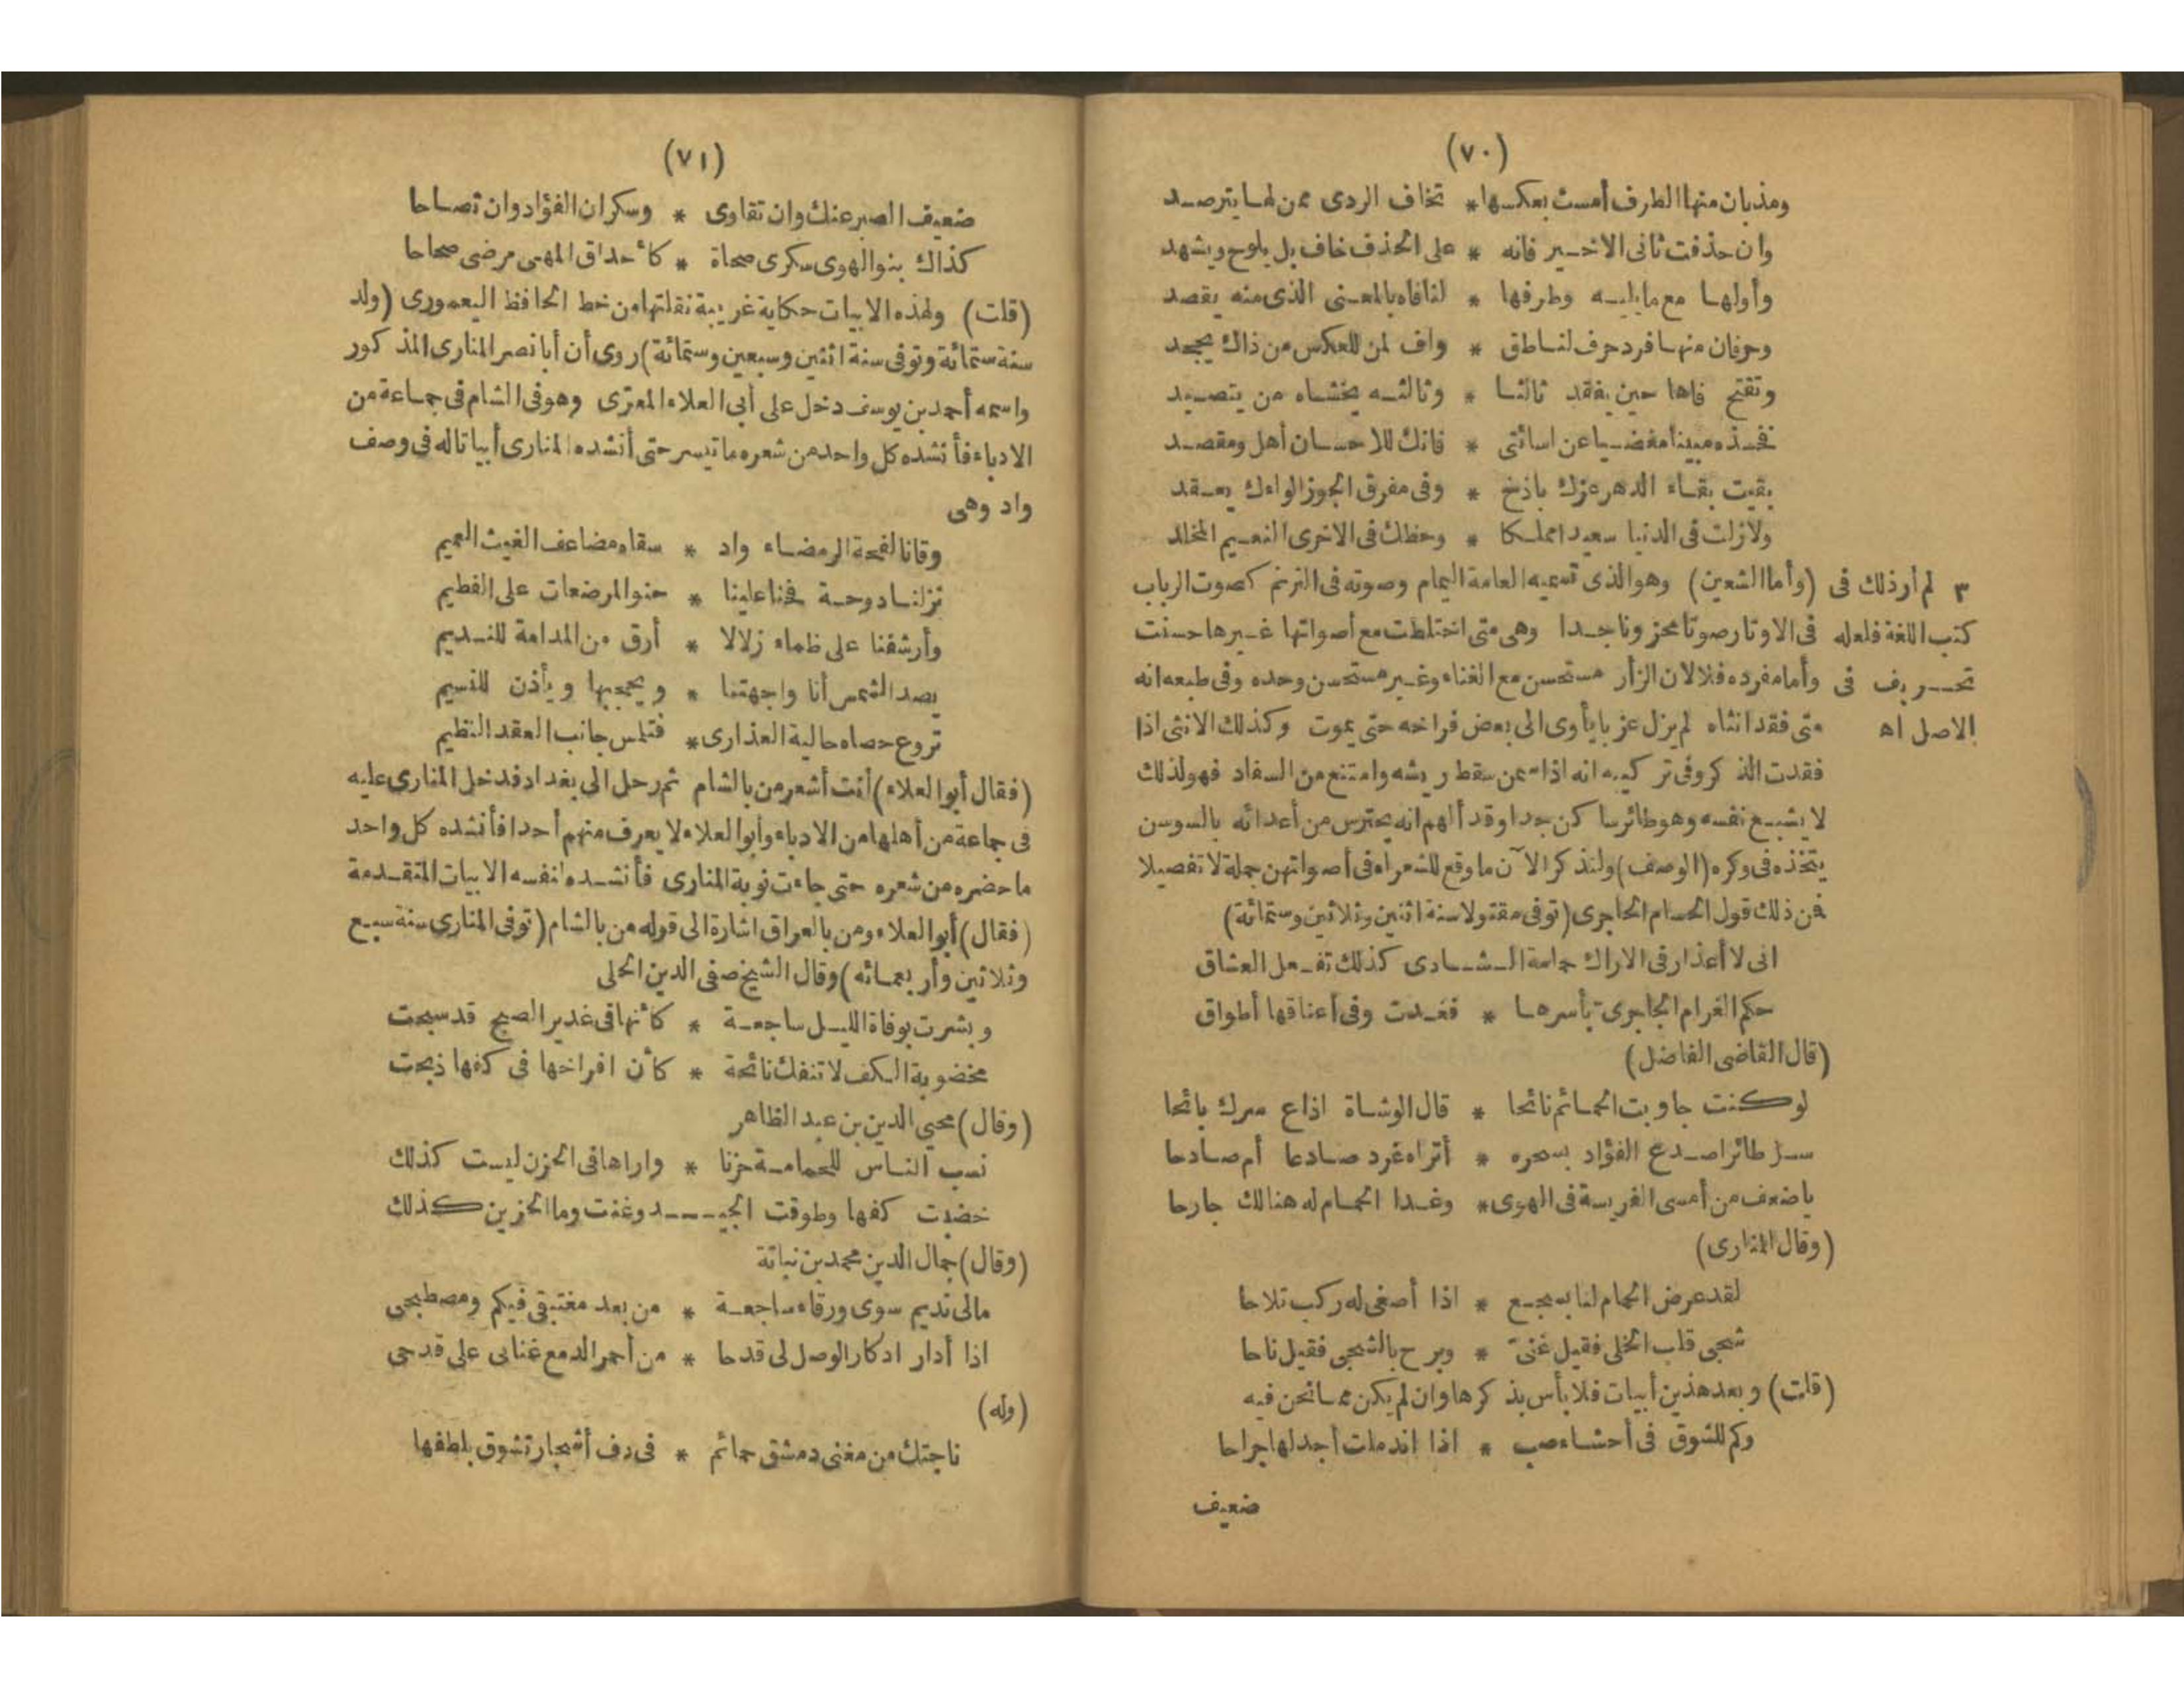 (٧٠)
ومذبان منها الطرف أمست بعكسها * تخاف الردى ممن لها يترصد
وان حذفت ثانى الاخير فانه * على الحذف خاف بل يلوح ويشهد
وأولها مع مايليه وطرفها * لنافاه بالمعنى الذى منه يقصد
وحرفان منها فرد حرف لناطق * واف لمن للعكس من ذاك يجحد
وتفتح فاها حين يفقد ثالثا * وثالثه يخشاه من يتصيد
فخذه مبينا مغضيا عن اسائتى * فانك للاحسان أهل ومقصد
بقيت بقاء الدهر عزك باذخ * وفى مفرق الجوزا لواءك يعقد
ولازلت فى الدنيا سعيدا مملكا * وحظك فى الاخرى النعيم المخلد
٣ لم أر ذلك فى (وأما الشعين) وهو الذى تسميه العامة اليمام وصوته فى الترنم كصوت الرباب
كتب اللغة فلعله فى الاوتار صوتا محزونا جدا وهى متى اختلطت مع أصواتها غيرها حسنت
تحريف فى وأما مفرده فلا لان الزأر مستحسن مع الغناء وغير مستحسن وحده وفى طبعه انه
الاصل اه متى فقد انثاه لم يزل عزبا يأوى الى بعض فراخه حتى يموت وكذلك الانثى اذا
فقدت الذكر وفى تركيبه انه اذا سمن سقط ريشه وامتنع من السفاد فهو لذلك
لا يشبع نفسه وهو طائر ساكن جدا وقد ألهم انه يحترس من أعدائه بالسوسن
يتخذه فى وكره (الوصف) ولنذكر الآن ماوقع للشعراء فى أصواتهن جملة لا تفصيلا
فن ذلك قول الحسام الحاجرى (توفى مقتولا سنة اثنين وثلاثين وستمائة)
انى لا أعذار فى الاراك حمامة الشادى كذلك تفعل العشاق
حكم الغرام الحاجرى بأسرها * فغدت وفى أعناقها أطواق
(قال القاضى الفاضل)
لو كنت جاوبت الحمائم نائحا * قال الوشاة اذاع سرك بائحا
سل طائرا صدع الفؤاد بسحره * أتراه غرد صادعا أم صادحا
ياضعف من أمسى الفريسة فى الهوى * وغدا الحمام له هنالك جارحا
(وقال المنارى)
لقد عرض الحمام لنا بسجع * اذا أصغى له ركب تلاحا
شجى قلب الخلى فقيل غنى * وبرح بالشجى فقيل ناحا
(قلت) وبعد هذين أبيات فلا بأس بذكرها وان لم يكن مما نحن فيه
وكم للشوق فى أحشاء صب * اذا اندملت أجد لها جراحا
ضعيف
(٧١)
ضعيف الصبر عنك وان تقاوى * وسكران الفؤاد وان تصاحا
كذاك بنو الهوى سكرى صحاة * كأحداق المهى مرضى صحاحا
(قلت) ولهذه الابيات حكاية غريبة نقلتها من خط الحافظ اليعمورى (ولد
سنة ستمائة وتوفى سنة اثنين وسبعين وستمائة) روى أن أبا نصر المنارى المذكور
واسمه أحمد بن يوسف دخل على أبى العلاء المعرّى وهو فى الشام فى جماعة من
الادباء فأنشده كل واحد من شعره ما تيسر حتى أنشده المنارى أبياتا له فى وصف
واد وهى
وقانا لفحة الرمضاء واد * سقاه مضاعف الغيث العميم
نزلنا دوحة فحنا علينا * حنو المرضعات على الفطيم
وأرشفنا على ظماء زلالا * أرق من المدامة للنديم
يصد الشمس أنا واجهتنا * ويحجبها ويأذن للنسيم
تروع حصاه حالية العذارى * فتلمس جانب العقد النظيم
(فقال أبو العلاء) أنت أشعر من بالشام ثم رحل الى بغداد فدخل المنارى عليه
فى جماعة من أهلها من الادباء وأبو العلاء لا يعرف منهم أحدا فأنشده كل واحد
ما حضره من شعره حتى جاءت نوبة المنارى فأنشده لنفسه الابيات المتقدمة
(فقال) أبو العلاء ومن بالعراق اشارة الى قوله من بالشام (توفى المنارى سنة سبع
وثلاثين وأربعمائه) وقال الشيخ صفى الدين الحلى
وبشرت بوفاة الليل ساجعة * كأنها فى غدير الصبح قد سبحت
مخضوبة الكف لا تنفك نائحة * كأن افراخها فى كفها ذبحت
(وقال) محيى الدين بن عبد الظاهر
نسب الناس للحمامة حزنا * واراها فى الحزن ليست كذلك
خضبت كفها وطوقت الجيـــد وغنت وما الحزين كذلك
(وقال) جمال الدين محمد بن نباتة
مالى نديم سوى ورقاء ساجعة * من بعد مغتبقى فيكم ومصطبحى
اذا أدار ادكار الوصل لى قدحا * من أحمر الدمع غنانى على قدحى
(وله)
ناجتك من مغنى دمشق حمائم * فى دف أشجار تشوق بلطفها